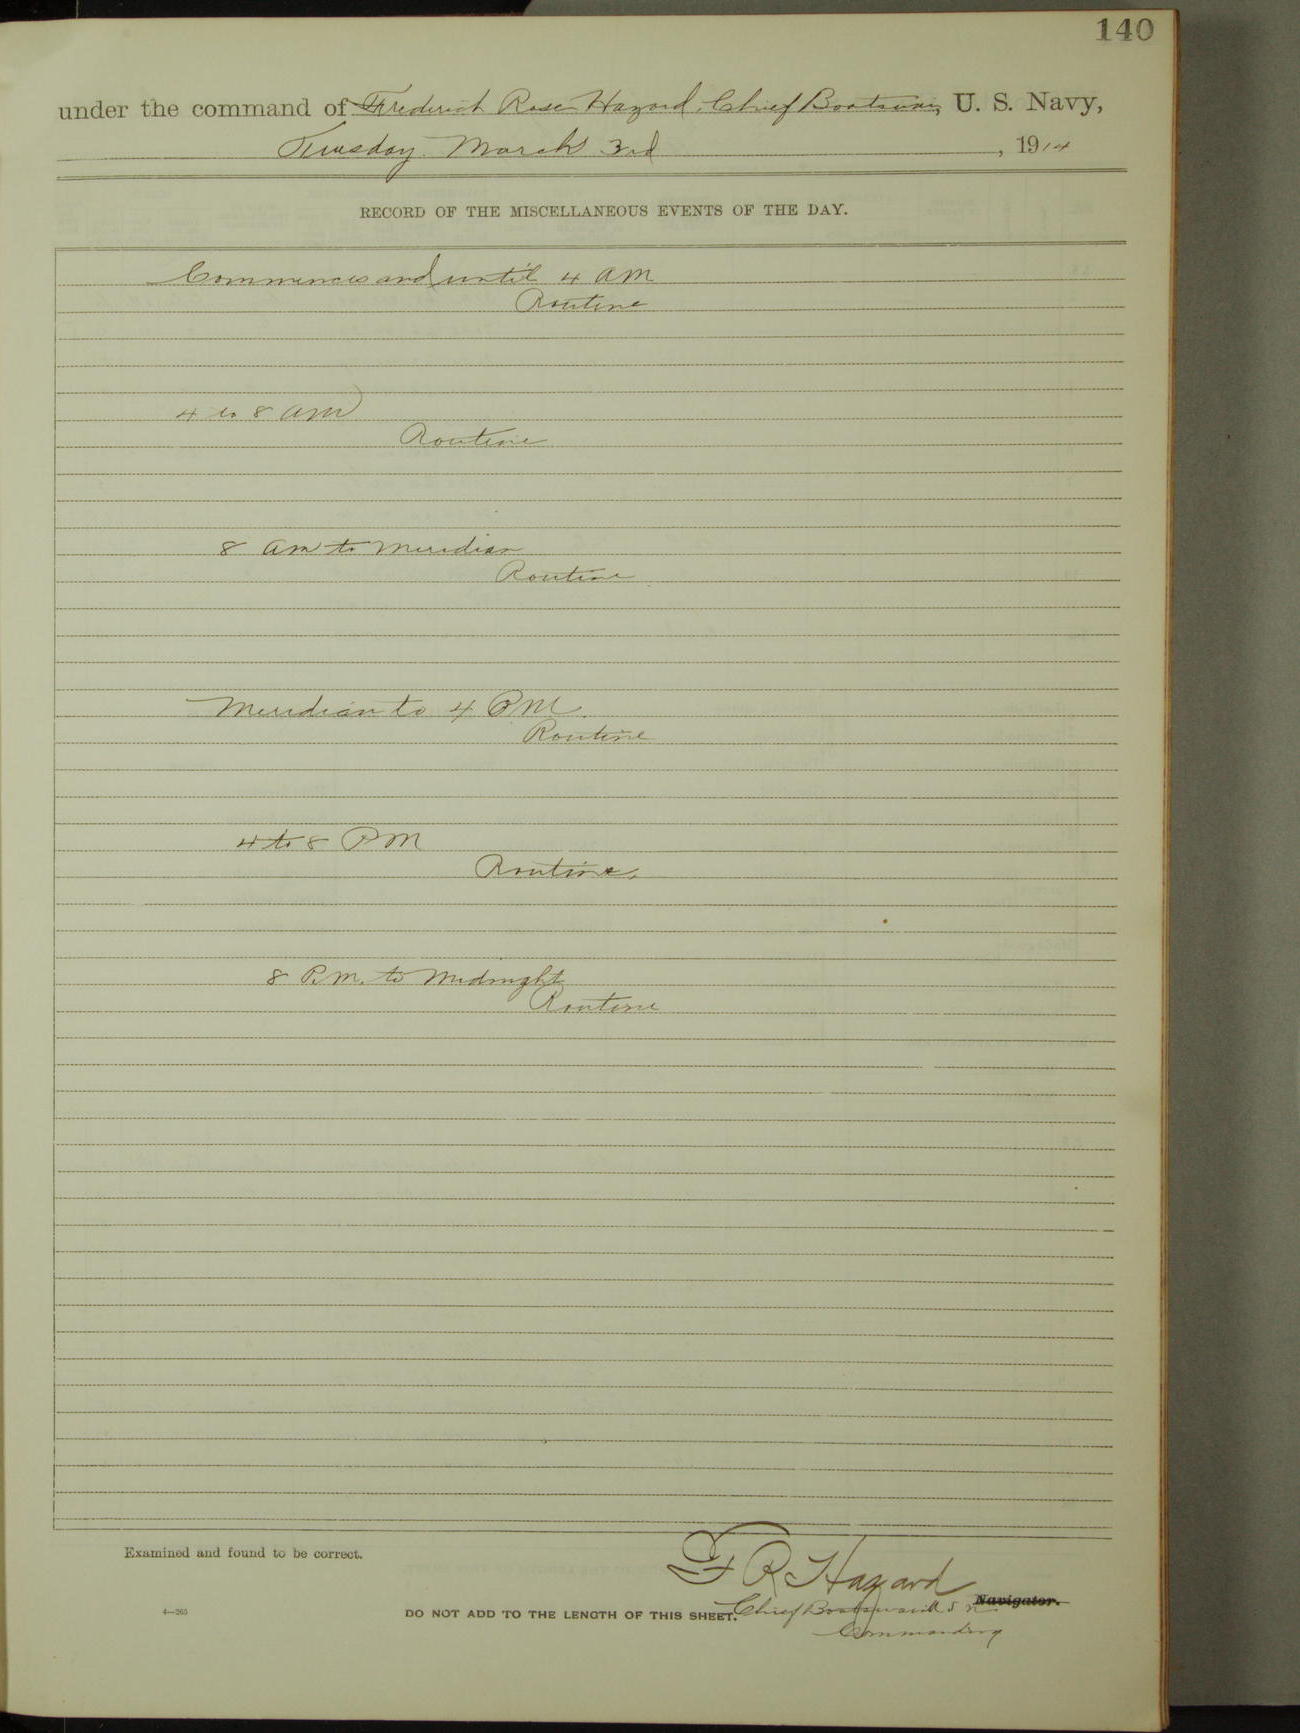 140
under the command of Frederick Rose Hazard, Chief Boatswain, U. S. Navy,
Tuesday March 3rd, 1914
RECORD OF THE MISCELLANEOUS EVENTS OF THE DAY.
Commences and until 4 AM
Routine
4 to 8 AM
Routine
8 am to Meridian
Routine
Meridian to 4 PM.
Routine
4 to 8 PM
Routine.
8 P.M. to Midnight
Routine
Examined and found to be correct.
F R Hazard
Navigator.
4—265
DO NOT ADD TO THE LENGTH OF THIS SHEET.
Chief Boatswain U S N
Commanding